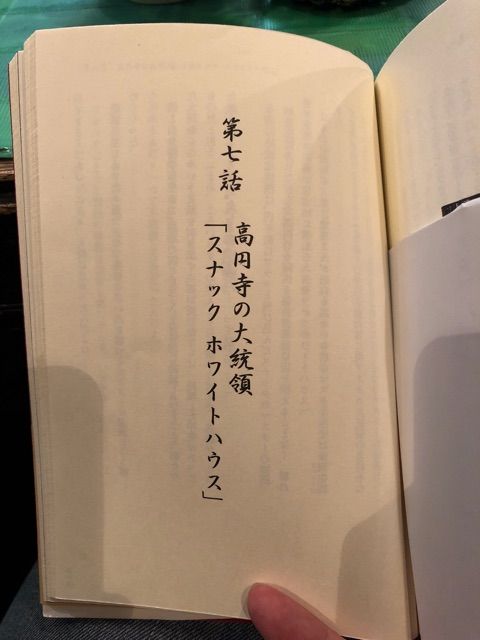 第七話
高円寺の大統領
「スナック ホワイトハウス」